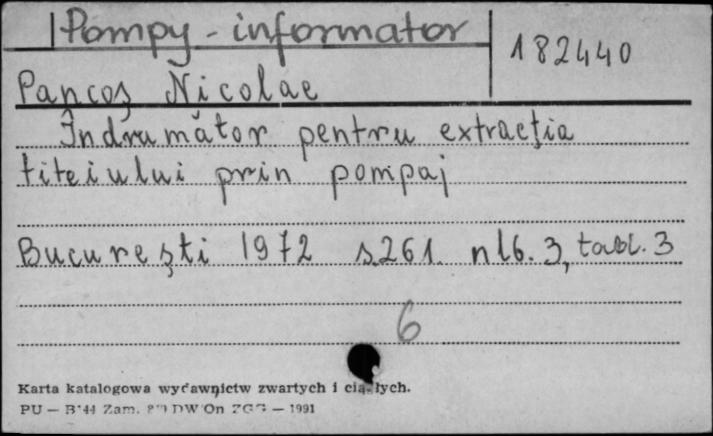 Pompy - informator
182440
Pancoş Nicolae
Îndrumător pentru extracţia
titeiului prin pompaj
Bucureşti 1972 s.261. nlb. 3, tabl. 3
6
Karta katalogowa wydawnictw zwartych i ciągłych.
PU — Zam. DW On ZGG — 1991